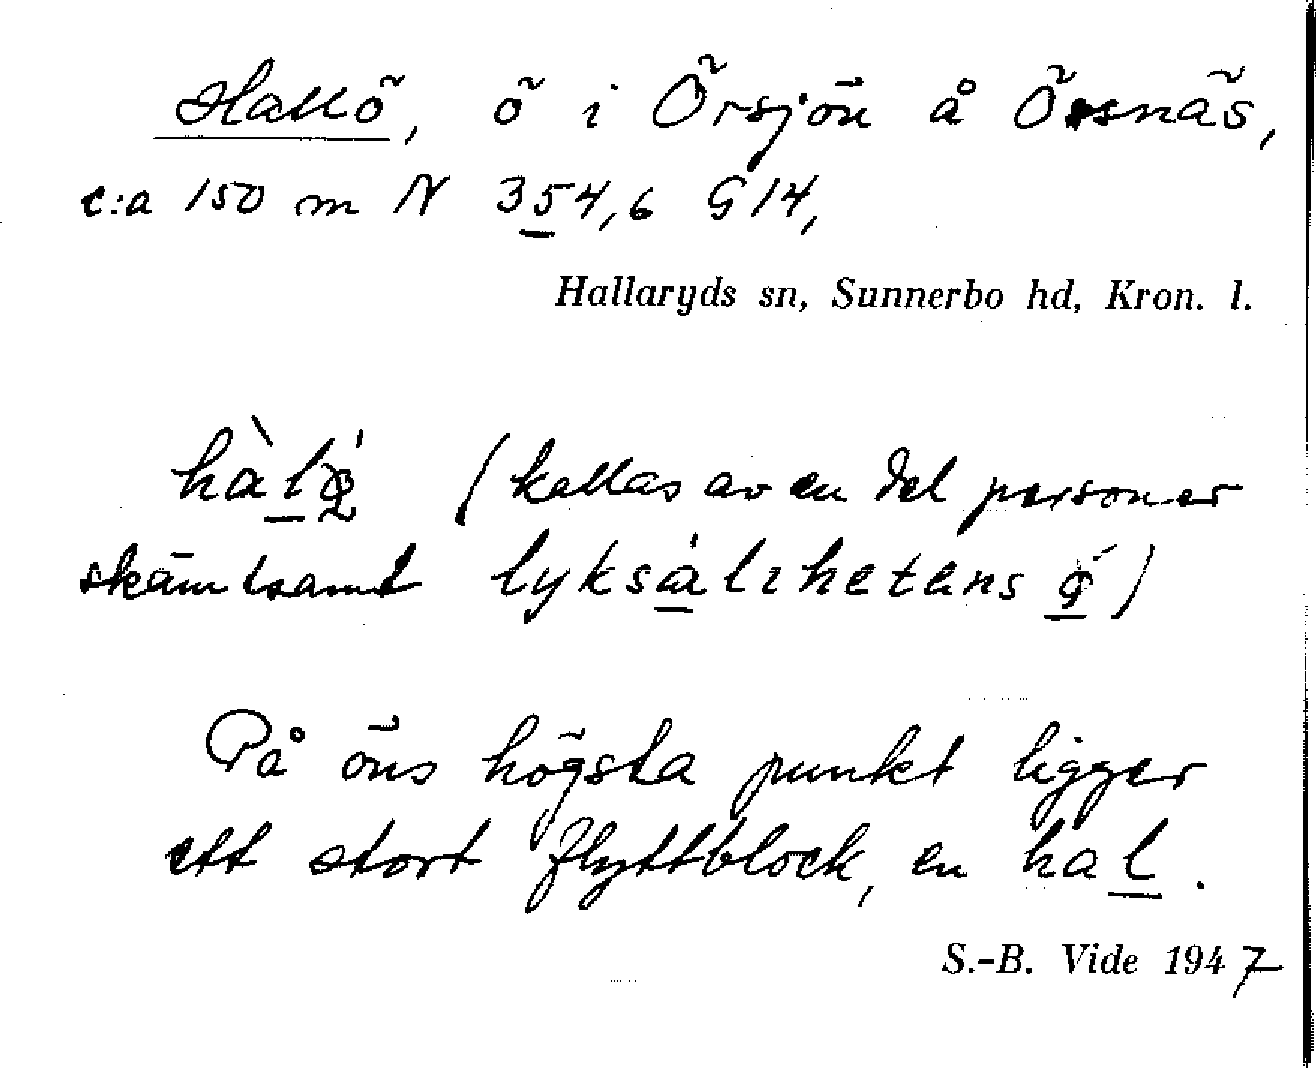 Hallö, ö i Örsjön å Örsnäs,
c:a 150 m N 354,6 G14,
Hallaryds sn, Sunnerbo hd, Kron. l.
(kallas av en del personer
skämtsamt lyksàlihetens ǿ)
På öns högsta punkt ligger
ett stort flyttblock, en hal.
S.-B. Vide 1947